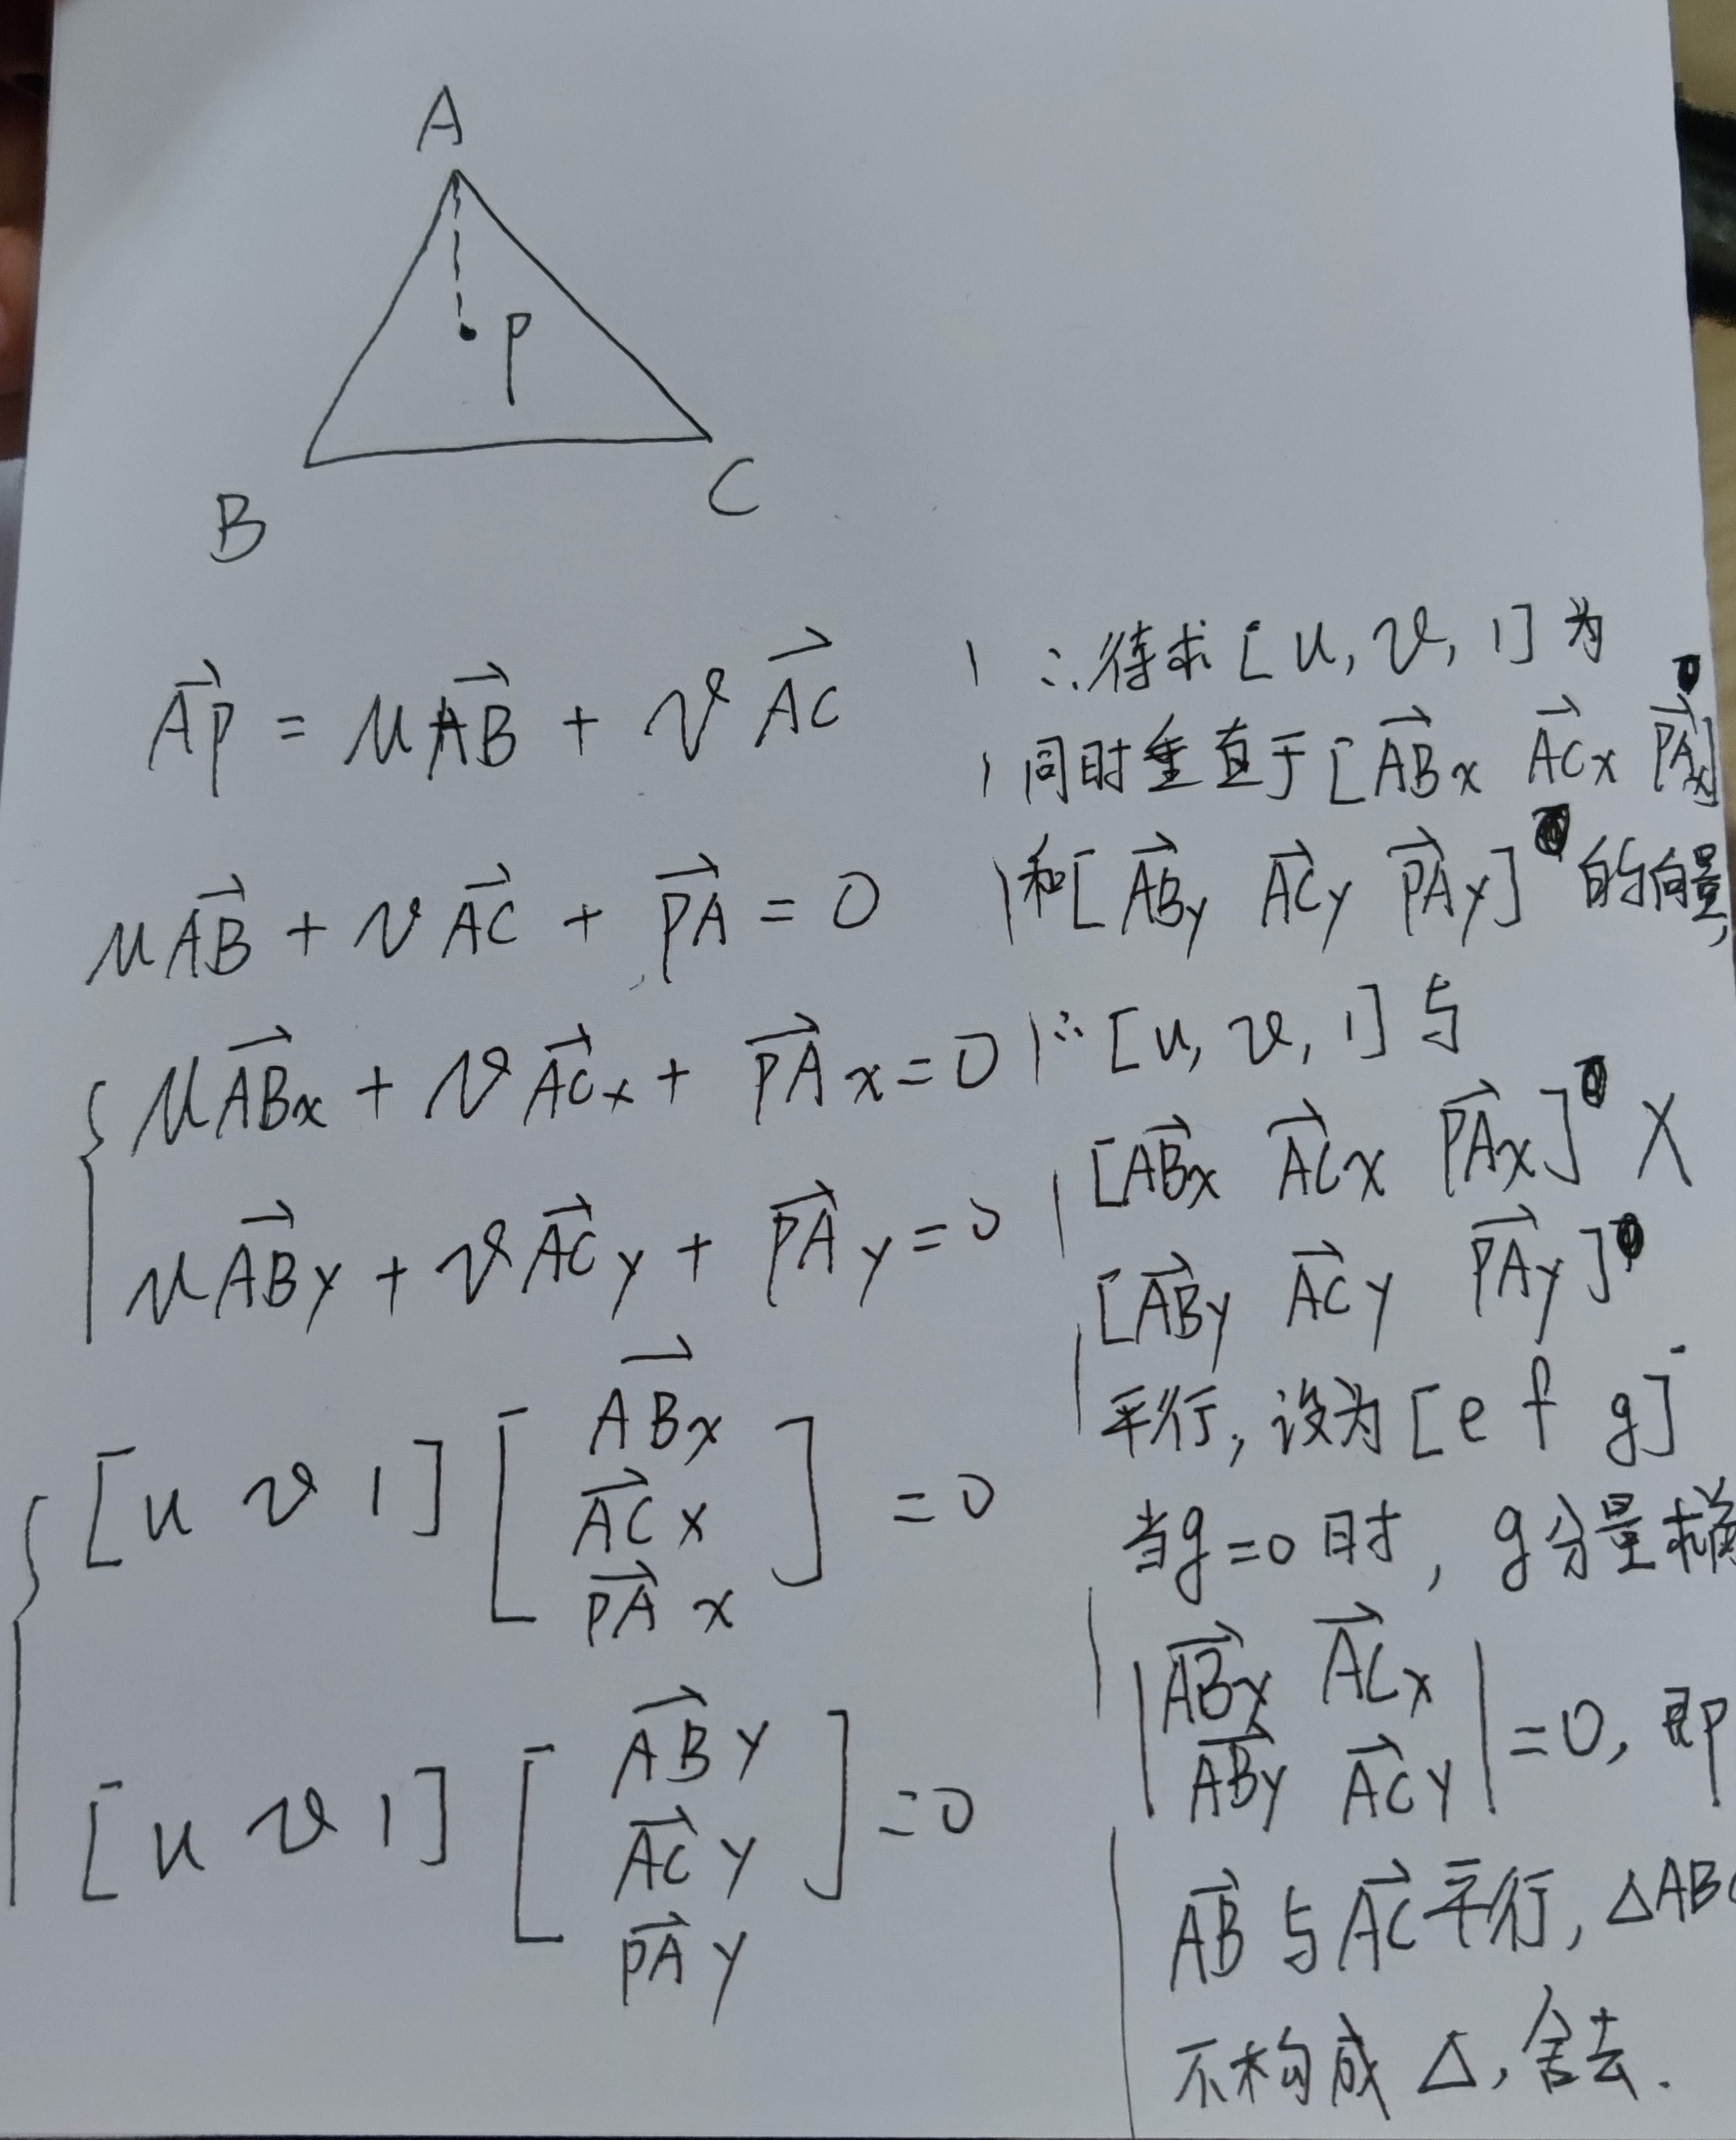 A
P
B
C
AP⃗ = uAB⃗ + vAC⃗
uAB⃗ + vAC⃗ + PA⃗ = 0
{ uAB⃗x + vAC⃗x + PA⃗x = 0
uAB⃗y + vAC⃗y + PA⃗y = 0
{ [u v 1] [AB⃗x
AC⃗x
PA⃗x] = 0
[u v 1] [AB⃗y
AC⃗y
PA⃗y] = 0
∴待求[u, v, 1]为
同时垂直于[AB⃗x AC⃗x PA⃗x]
和[AB⃗y AC⃗y PA⃗y]的向量,
∴[u, v, 1]与
[AB⃗x AC⃗x PA⃗x] X
[AB⃗y AC⃗y PA⃗y]
平行,设为[e f g]
当g=0时, g分量
|AB⃗x AC⃗x
AB⃗y AC⃗y| = 0, 即
AB⃗与AC⃗平行, △ABC
不构成△, 舍去.